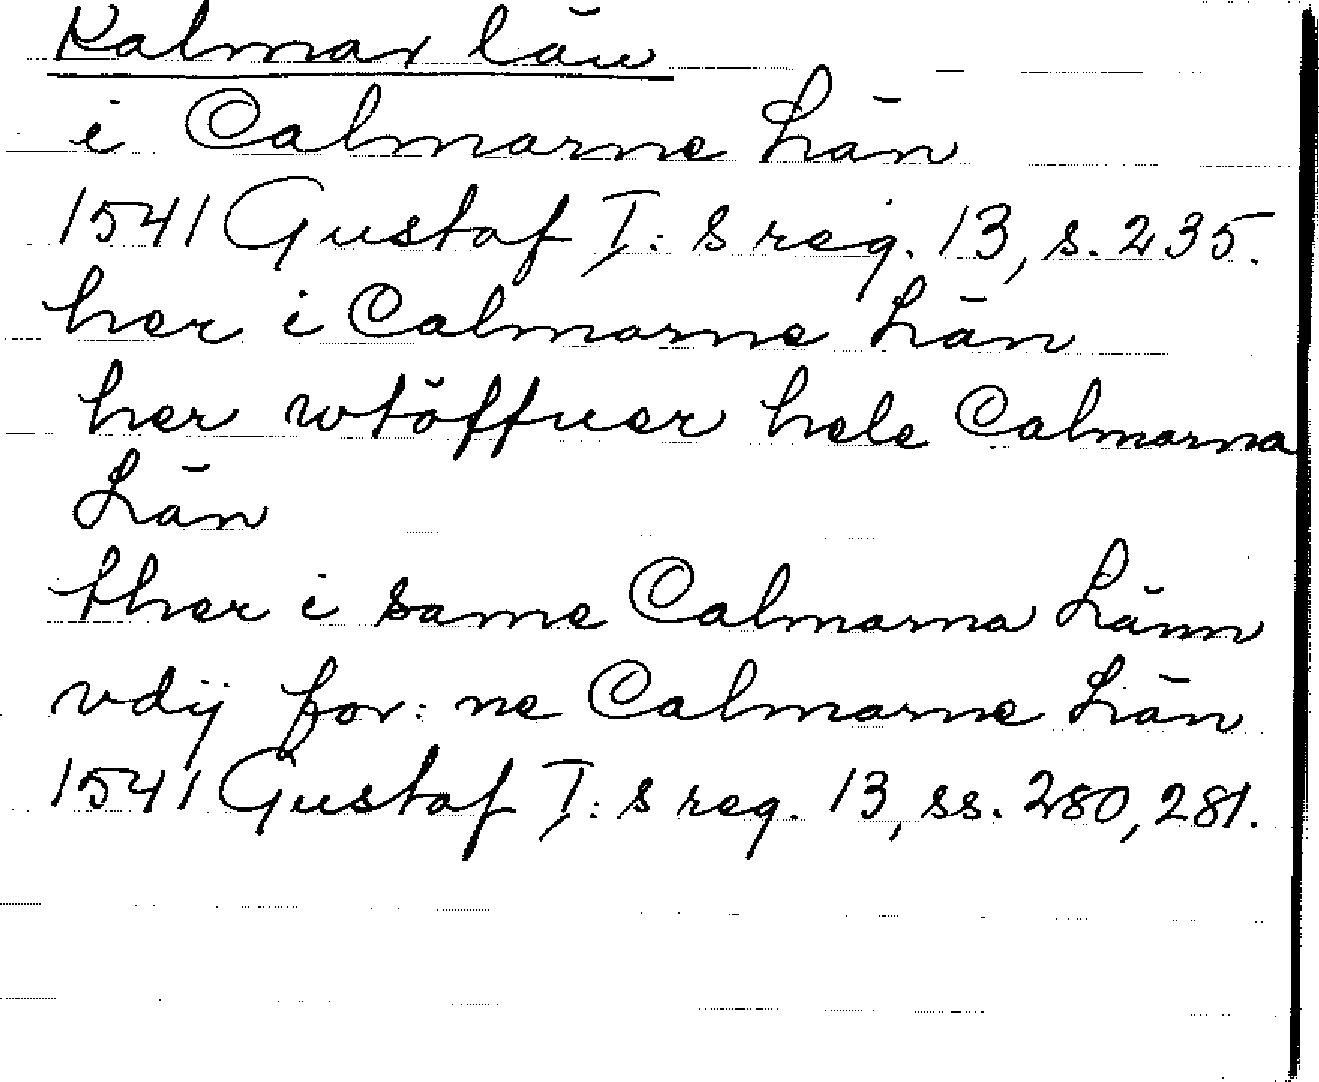 Kalmar län
i Calmarne Län
1541 Gustaf I:s reg. 13, s. 235.
her i Calmarne Län
her wtöffuer hele Calmarna
Län
ther i same Calmarna Länn
vdij for:ne Calmarne Län
1541 Gustaf I:s reg. 13, ss. 280, 281.